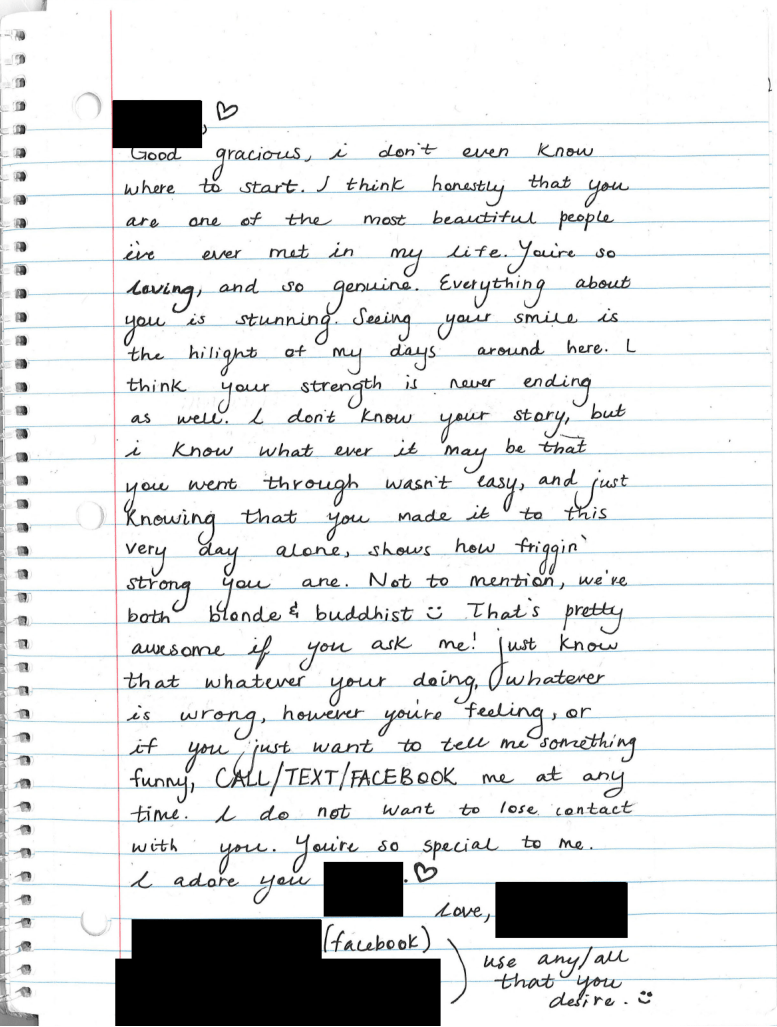 , ♡
Good gracious, i don't even know
where to start. I think honestly that you
are one of the most beautiful people
i've ever met in my life. You're so
loving, and so genuine. Everything about
you is stunning. Seeing your smile is
the hilight of my days around here. I
think your strength is never ending
as well. I don't know your story, but
i know what ever it may be that
you went through wasn't easy, and just
knowing that you made it to this
very day alone, shows how friggin'
strong you are. Not to mention, we're
both blonde & buddhist :) That's pretty
awesome if you ask me! just know
that whatever your doing, whatever
is wrong, however you're feeling, or
if you just want to tell me something
funny, CALL/TEXT/FACEBOOK me at any
time. I do not want to lose contact
with you. You're so special to me.
I adore you . ♡
Love,
(facebook)
use any/all
that you
desire. :)